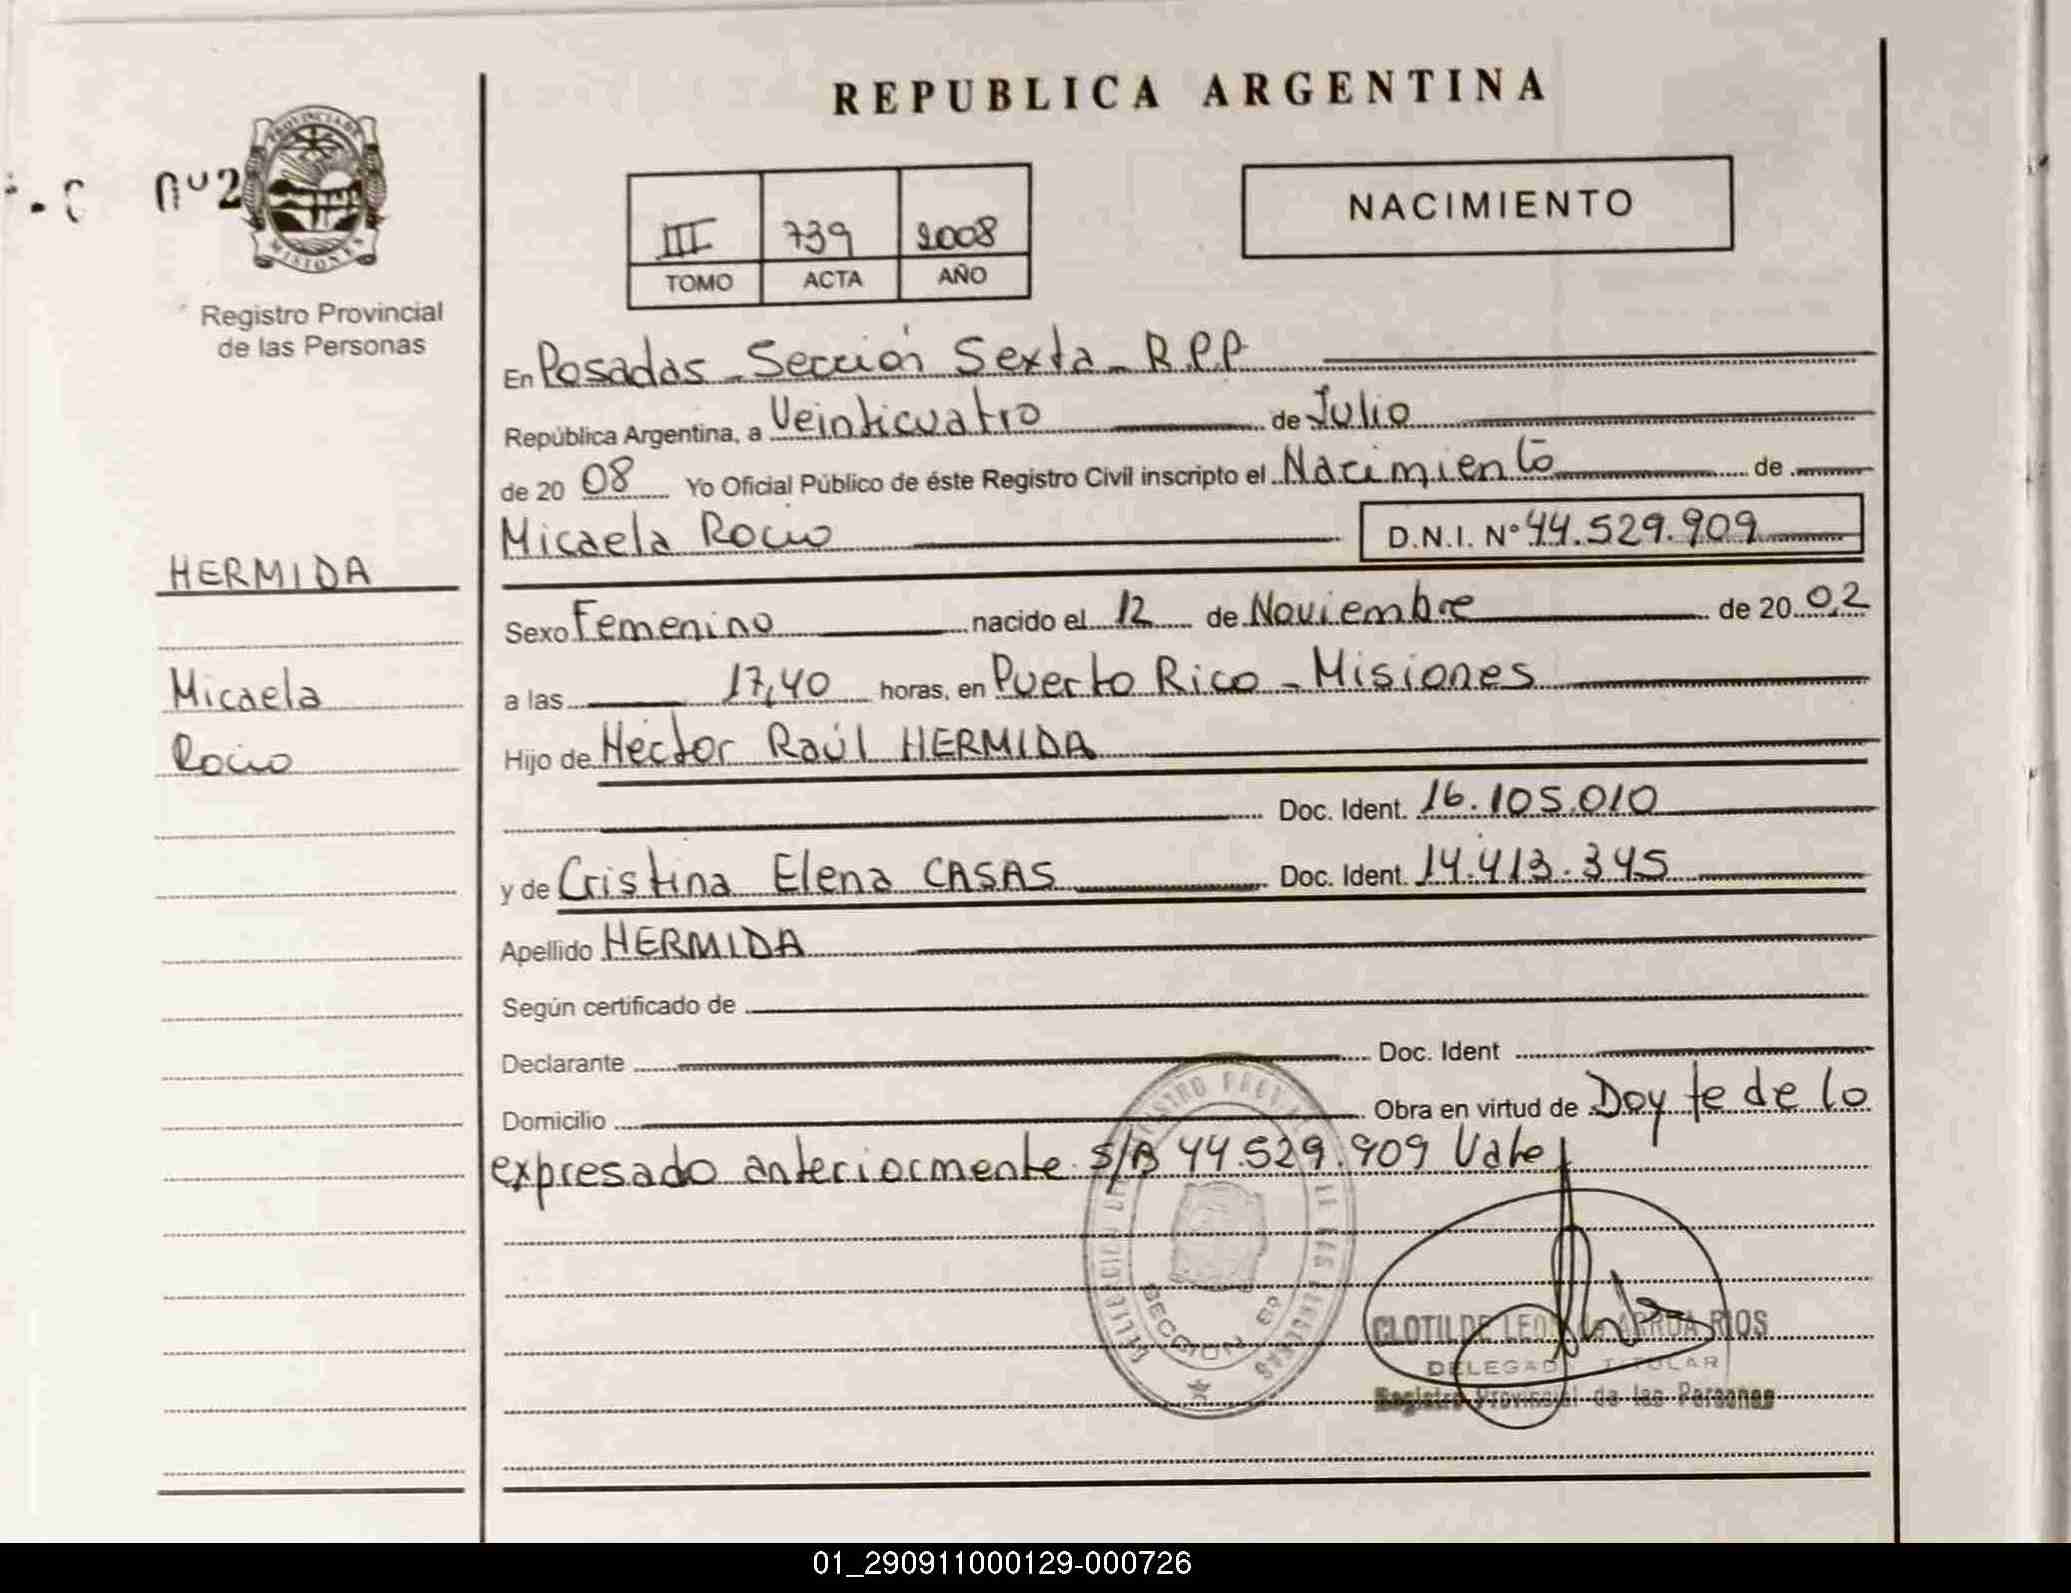 REPUBLICA ARGENTINA
nº2
PROVINCIA DE MISIONES
Registro Provincial
de las Personas
III 739 2008
TOMO ACTA AÑO
NACIMIENTO
En Posadas - Sección Sexta - R.P.P
República Argentina, a Veinticuatro de Julio
de 20 08 Yo Oficial Público de éste Registro Civil inscripto el Nacimiento de
Micaela Rocio D.N.I. Nº 44.529.909
HERMIDA
Micaela
Rocio
Sexo Femenino nacido el 12 de Noviembre de 20 02
a las 17,40 horas, en Puerto Rico - Misiones
Hijo de Héctor Raúl HERMIDA
Doc. Ident. 16.105.010
y de Cristina Elena CASAS Doc. Ident. 14.413.345
Apellido HERMIDA
Según certificado de
Declarante Doc. Ident
Domicilio Obra en virtud de Doy fe de lo
expresado anteriormente S/B 44.529.909 Vale
SECCION
CLOTILDE ARRUA RIOS
DELEGADA TITULAR
Registro Provincial de las Personas
01_290911000129-000726